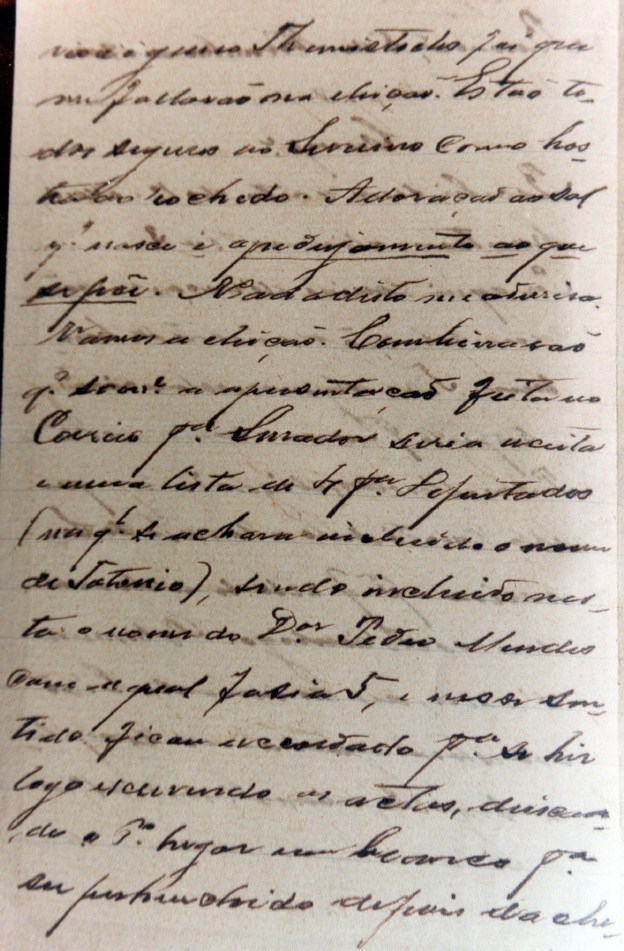 que Themistocles foi que
me fallarão na eleição. Estão to-
dos seguros ao Severino como hos-
tra ao rochedo. Adoração ao sol
q.' nasce e apedrejamento ao que
se põe. Nada disto me admira.
Vamos a eleição. Combinarão
q.' a apresentação feita no
Correio p.ª Senador seria acceita
e uma lista de 4 p.ª Deputados
(na q.l se achava incluido o nome
de Totonio), sendo incluido nes-
ta o nome do D.or Pedro Mendes
com a qual fazia 5, e nesse sen-
tido ficou accordado p.ª se hir
logo escrevendo as actas, deixan-
do o 1.º lugar em branco p.ª
ser prehenchido depois da che-